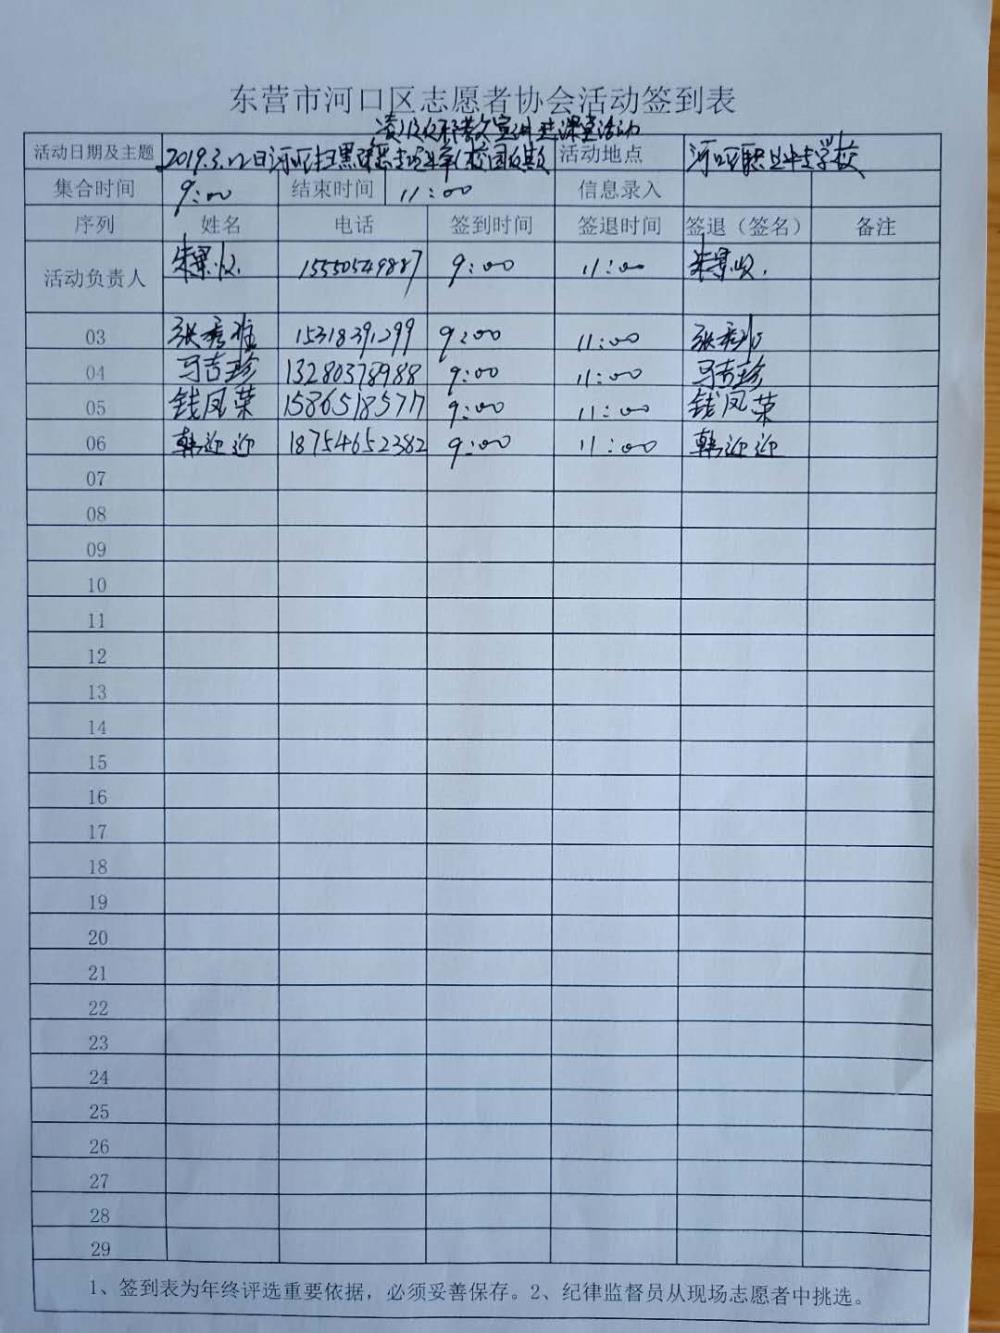 东营市河口区志愿者协会活动签到表
凌及反邪教宣讲进课堂活动
活动日期及主题 2019.3.12日河口区扫黑除恶专项斗争校园欺 活动地点 河口区职业中专学校
集合时间 9:00 结束时间 11:00 信息录入
序列 姓名 电话 签到时间 签退时间 签退（签名） 备注
活动负责人 15550549887 9:00 11:00
03 张秀雅 15318391299 9:00 11:00 张秀雅
04 马吉珍 13280378988 9:00 11:00 马吉珍
05 钱凤荣 15865185777 9:00 11:00 钱凤荣
06 韩迎迎 18754652382 9:00 11:00 韩迎迎
07
08
09
10
11
12
13
14
15
16
17
18
19
20
21
22
23
24
25
26
27
28
29
1、签到表为年终评选重要依据，必须妥善保存。2、纪律监督员从现场志愿者中挑选。